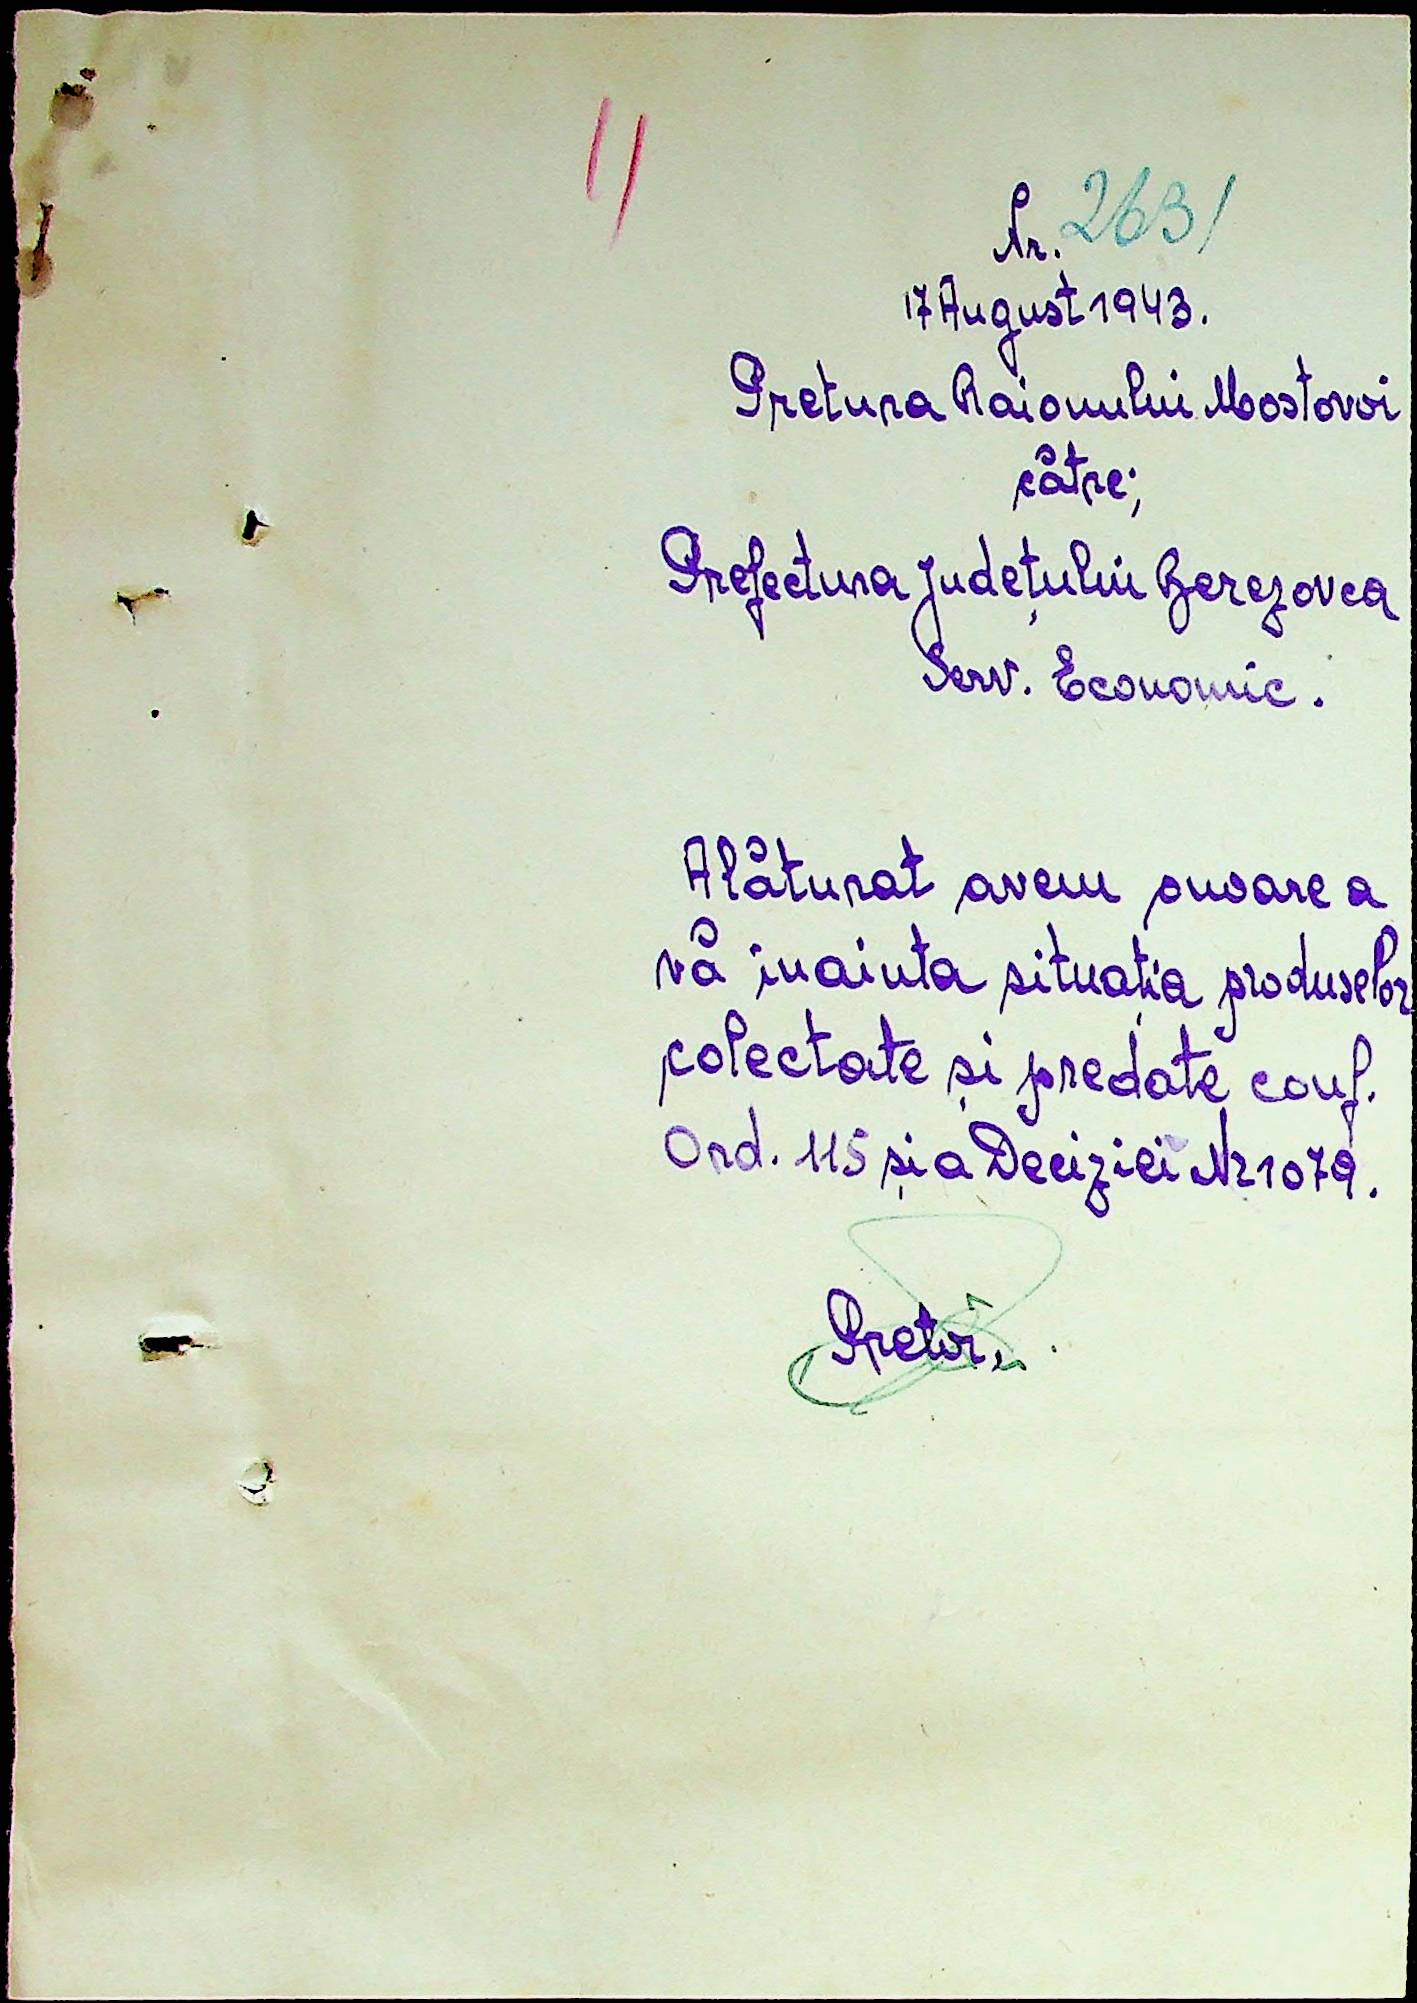 11
Nr. 2631
17 August 1943.
Pretura Raionului Mostovoi
către;
Prefectura Județului Berezovca
Serv. Economic.
Alăturat avem onoare a
vă inainta situația produselor
colectate și predate conf.
Ord. 115 și a Deciziei Nr 1079.
Pretor,